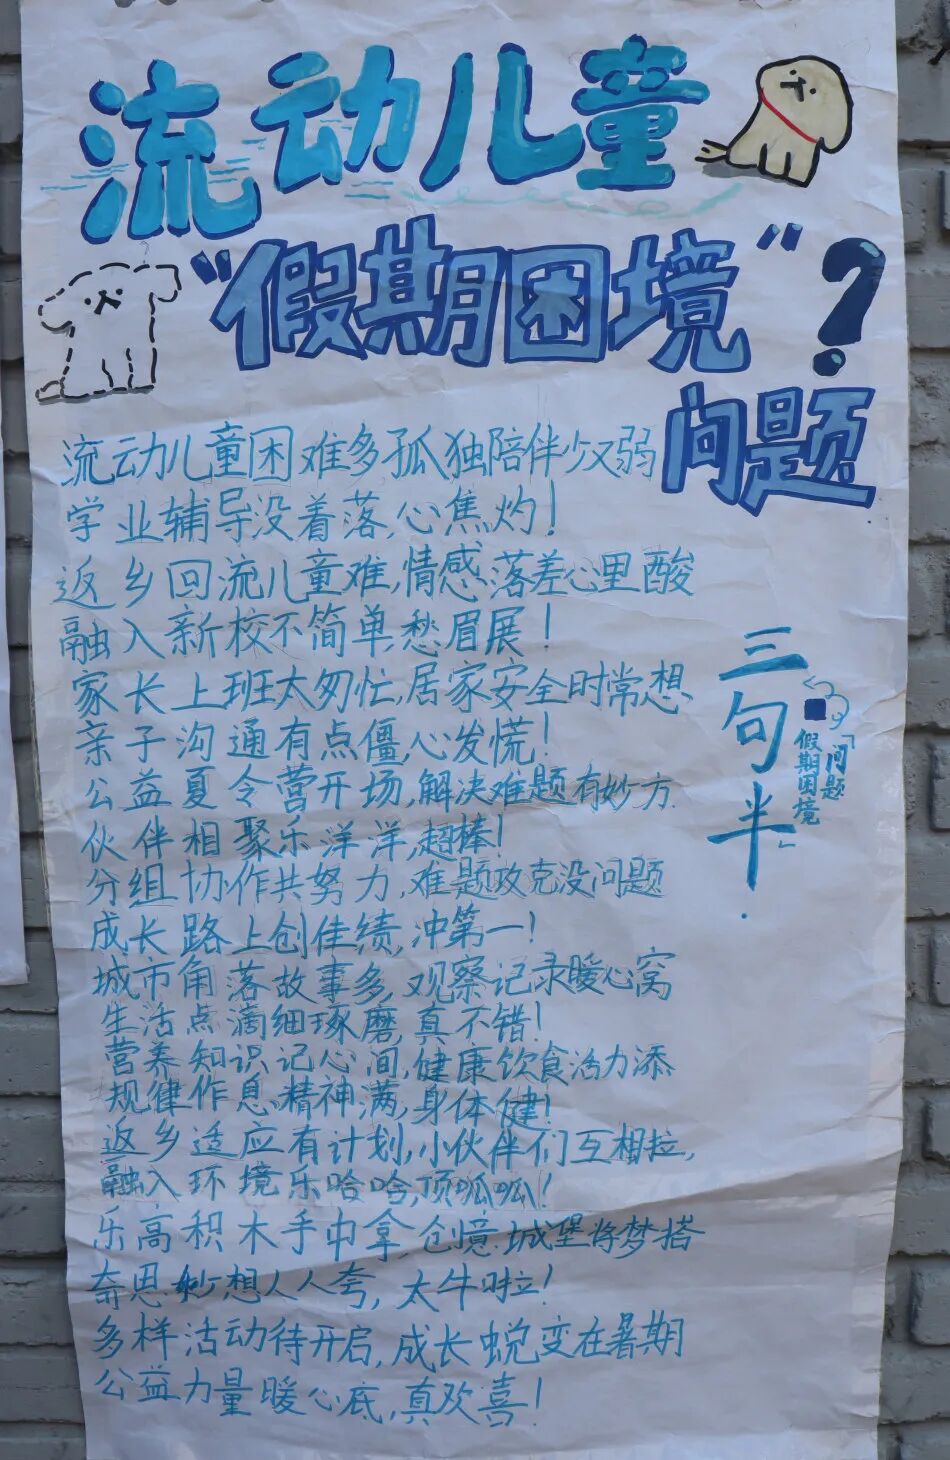 流动儿童
“假期困境”？
问题
流动儿童困难多孤独陪伴少又弱
学业辅导没着落,心焦灼！
返乡回流儿童难,情感落差心里酸
融入新校不简单,愁眉展！
家长上班太匆忙,居家安全时常想
亲子沟通有点僵,心发慌！
公益夏令营开场,解决难题有妙方
伙伴相聚乐洋洋,超棒！
分组协作共努力,难题攻克没问题
成长路上创佳绩,冲第一！
城市角落故事多,观察记录暖心窝
生活点滴细琢磨,真不错！
营养知识记心间,健康饮食活力添
规律作息精神满,身体健！
返乡适应有计划,小伙伴们互相拉,
融入环境乐哈哈,顶呱呱！
乐高积木手中拿,创意城堡将梦搭
奇思妙想人人夸,太牛啦！
多样活动待开启,成长蜕变在暑期
公益力量暖心底,真欢喜！
三句半
「问题
假期困境」